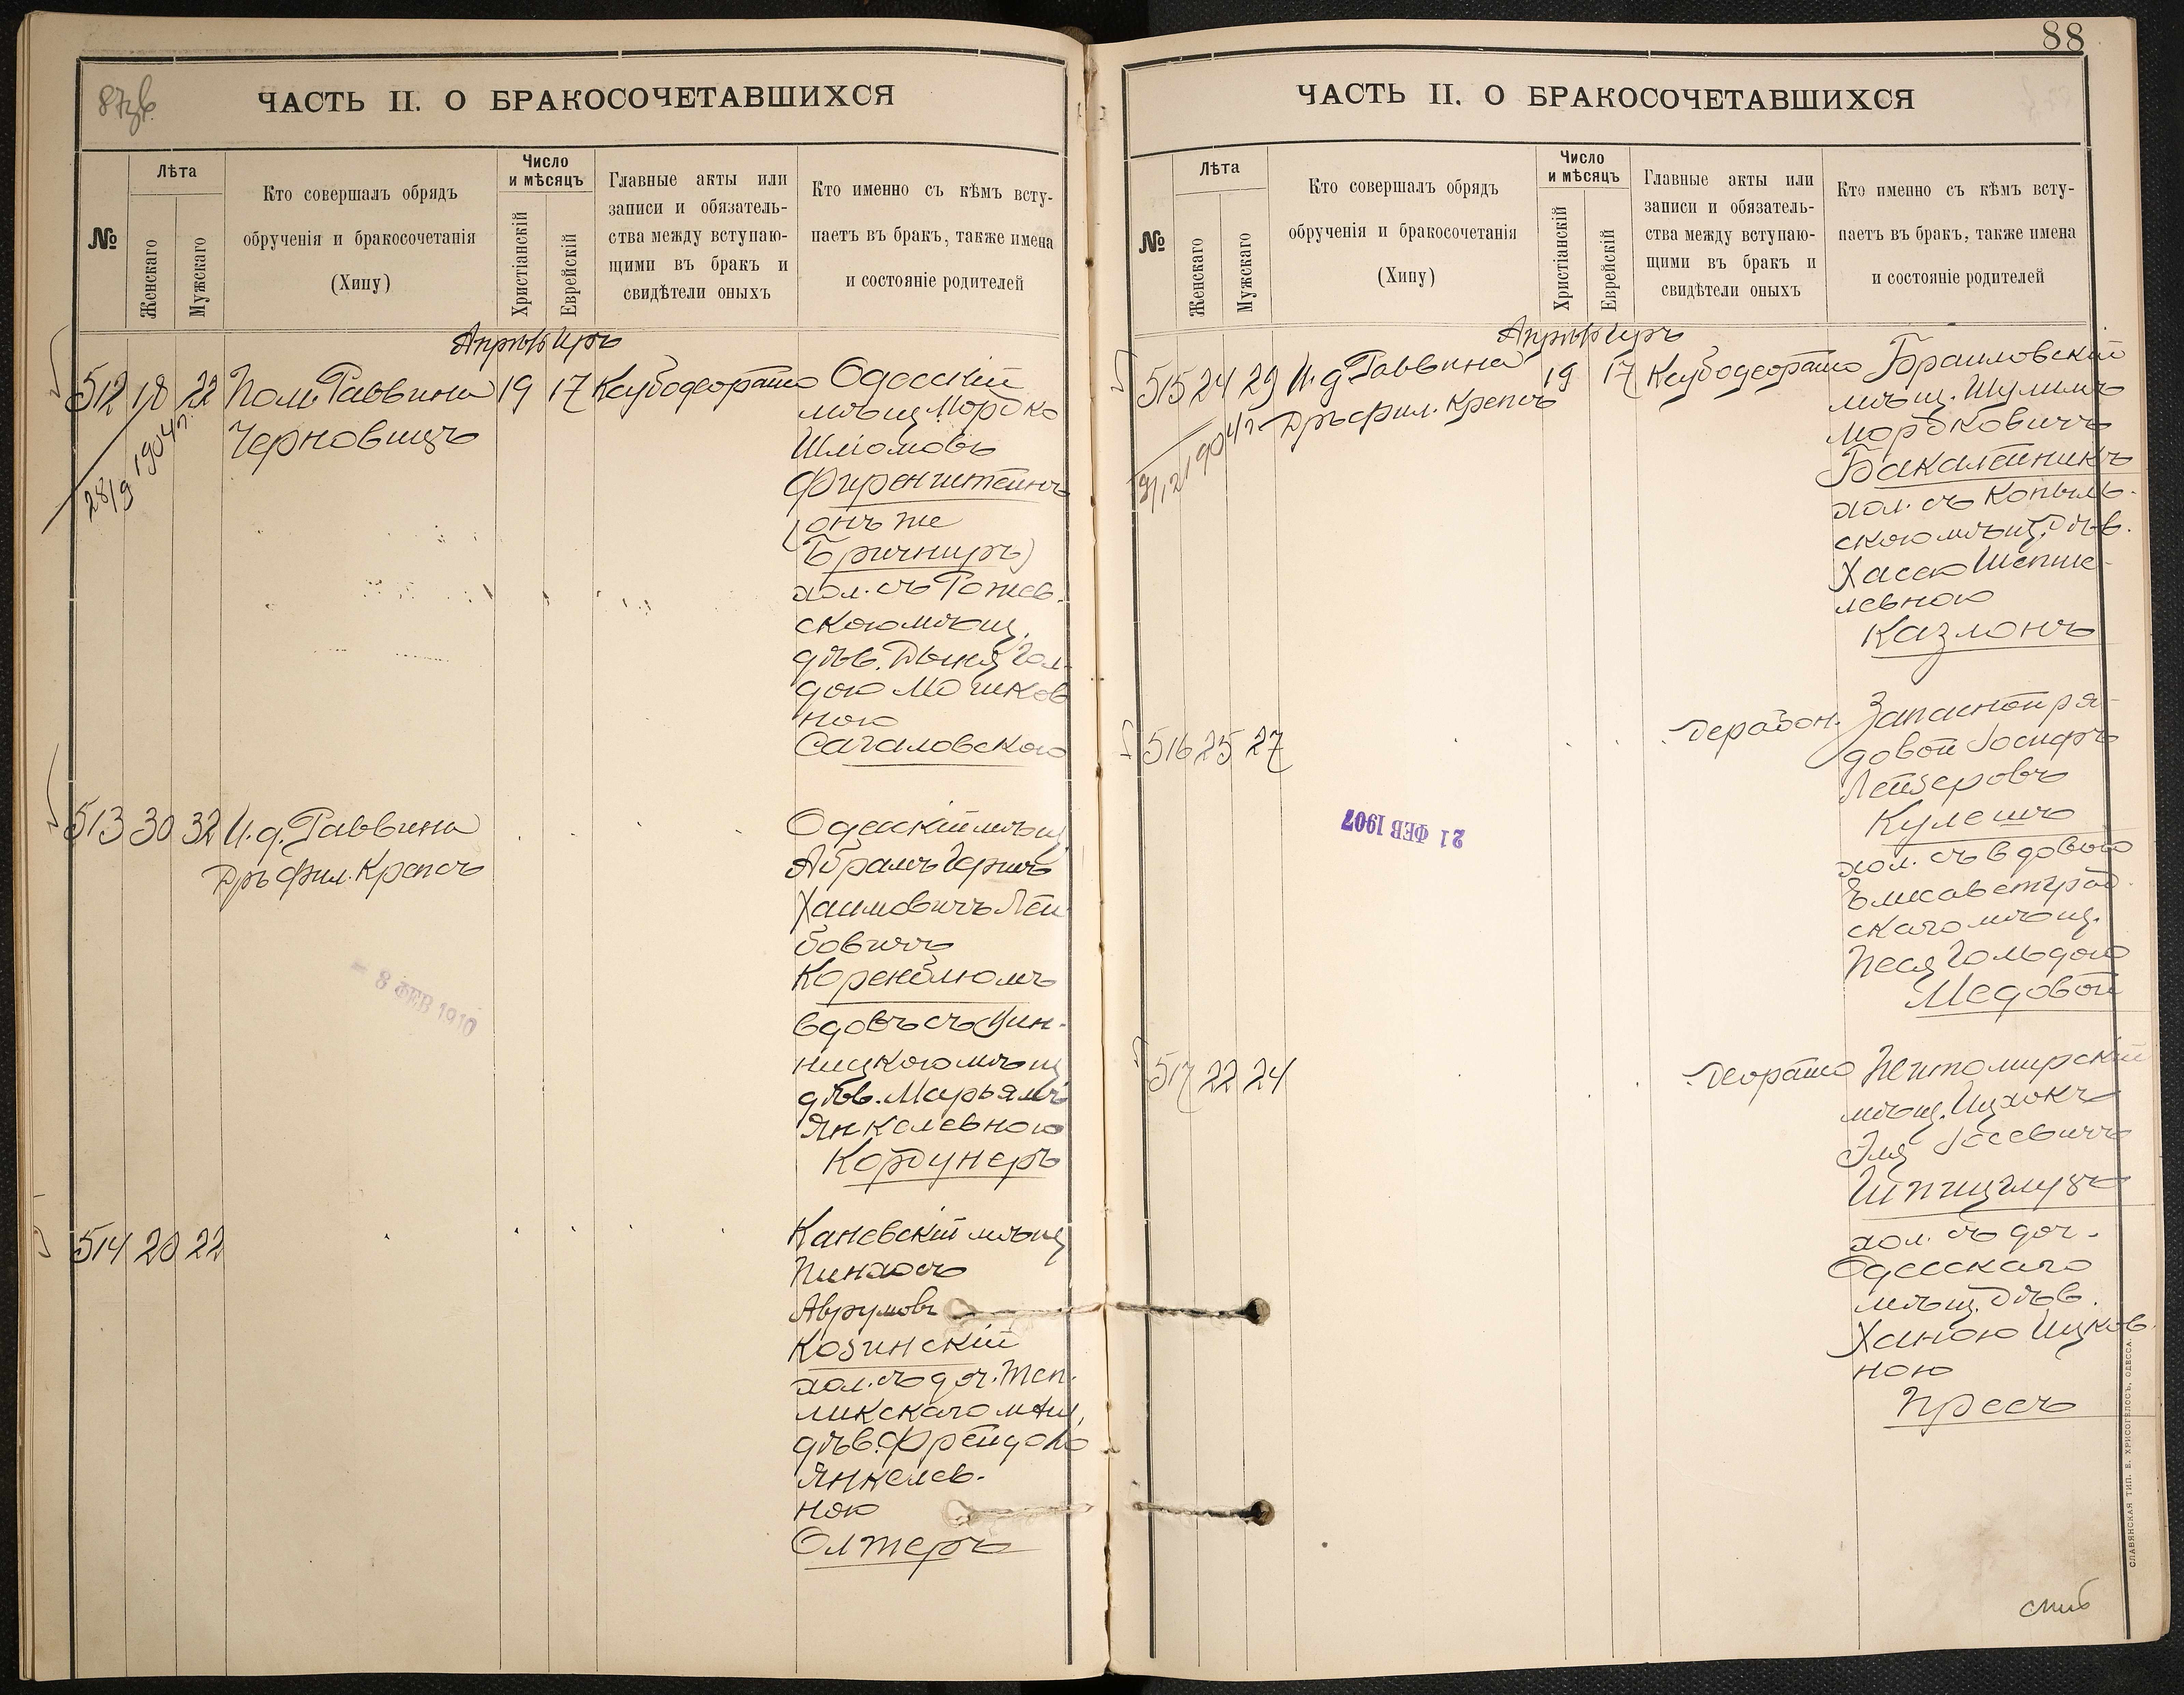 87зв.
ЧАСТЬ II. О БРАКОСОЧЕТАВШИХСЯ
№
Лѣта
Женскаго
Мужскаго
Кто совершалъ обрядъ
обрученія и бракосочетанія
(Хипу)
Число
и мѣсяцъ
Христіанскій
Еврейскій
Главные акты или
записи и обязатель-
ства между вступаю-
щими въ бракъ и
свидѣтели оныхъ
Кто именно съ кѣмъ всту-
паетъ въ бракъ, также имена
и состояніе родителей
Апрѣль Іиръ
512 18 22 Пом. Раввина 19 17 Каубодеорайто
Черновицъ
28/9 1904 г.
Одесскій
мѣщ. Мордко
Шліомовъ
Фиренштейнъ
(онъ же
Бричниръ)
хол. съ Рожев-
скою мѣщ.
дѣв. Двыня Гол-
дою Мошков
ною
Сагаловскою
513 30 32 И. д. Раввина
Дръ фил. Крепсъ
Одесскій мѣщ
Абрамъ Гершъ
Хаимовичъ Лей
бовичъ
Коренблюмъ
вдовъ съ Вин-
ницкою мѣщ
дѣв. Марьямъ
Янкелевною
Кордунеръ
- 8 ФЕВ 1910
514 20 22
Каневскій мѣщ
Пинхосъ
Аврумовъ
Козинскій
хол. съ доч. Теп-
ликскаго мѣщ.
дѣв. Фрейдою
Янкелев-
ною
Олтеръ
88
ЧАСТЬ II. О БРАКОСОЧЕТАВШИХСЯ
№
Лѣта
Женскаго
Мужскаго
Кто совершалъ обрядъ
обрученія и бракосочетанія
(Хипу)
Число
и мѣсяцъ
Христіанскій
Еврейскій
Главные акты или
записи и обязатель-
ства между вступаю-
щими въ бракъ и
свидѣтели оныхъ
Кто именно съ кѣмъ всту-
паетъ въ бракъ, также имена
и состояніе родителей
Апрѣль Іиръ
515 24 29 И. д. Раввина 19 17 Каубодеорайто
Дръ фил. Крепсъ
1904 г.
Браиловскій
мѣщ. Шулимъ
Мордковичъ
Бакалейникъ
хол. съ Копыль-
скою мѣщ. дѣв.
Хасею Шепше-
левною
Казлонъ
516 25 27 дерабон.
Запасной ря-
довой Іосифъ
Лейзеровъ
Кулешъ
хол. съ вдовою
Елисаветград-
скаго мѣщ.
Песя Гольдою
Медовой
21 ФЕВ 1907
517 22 24 деорайто
Житомирскій
мѣщ. Ицхокъ
Эля Іосевичъ
Шпицглузъ
хол. съ доч.
Одесскаго
мѣщ. дѣв.
Ханою Ицков-
ною
Пресъ
СЛАВЯНСКАЯ ТИП. Н. ХРИСОГЕЛОСЪ, ОДЕССА.